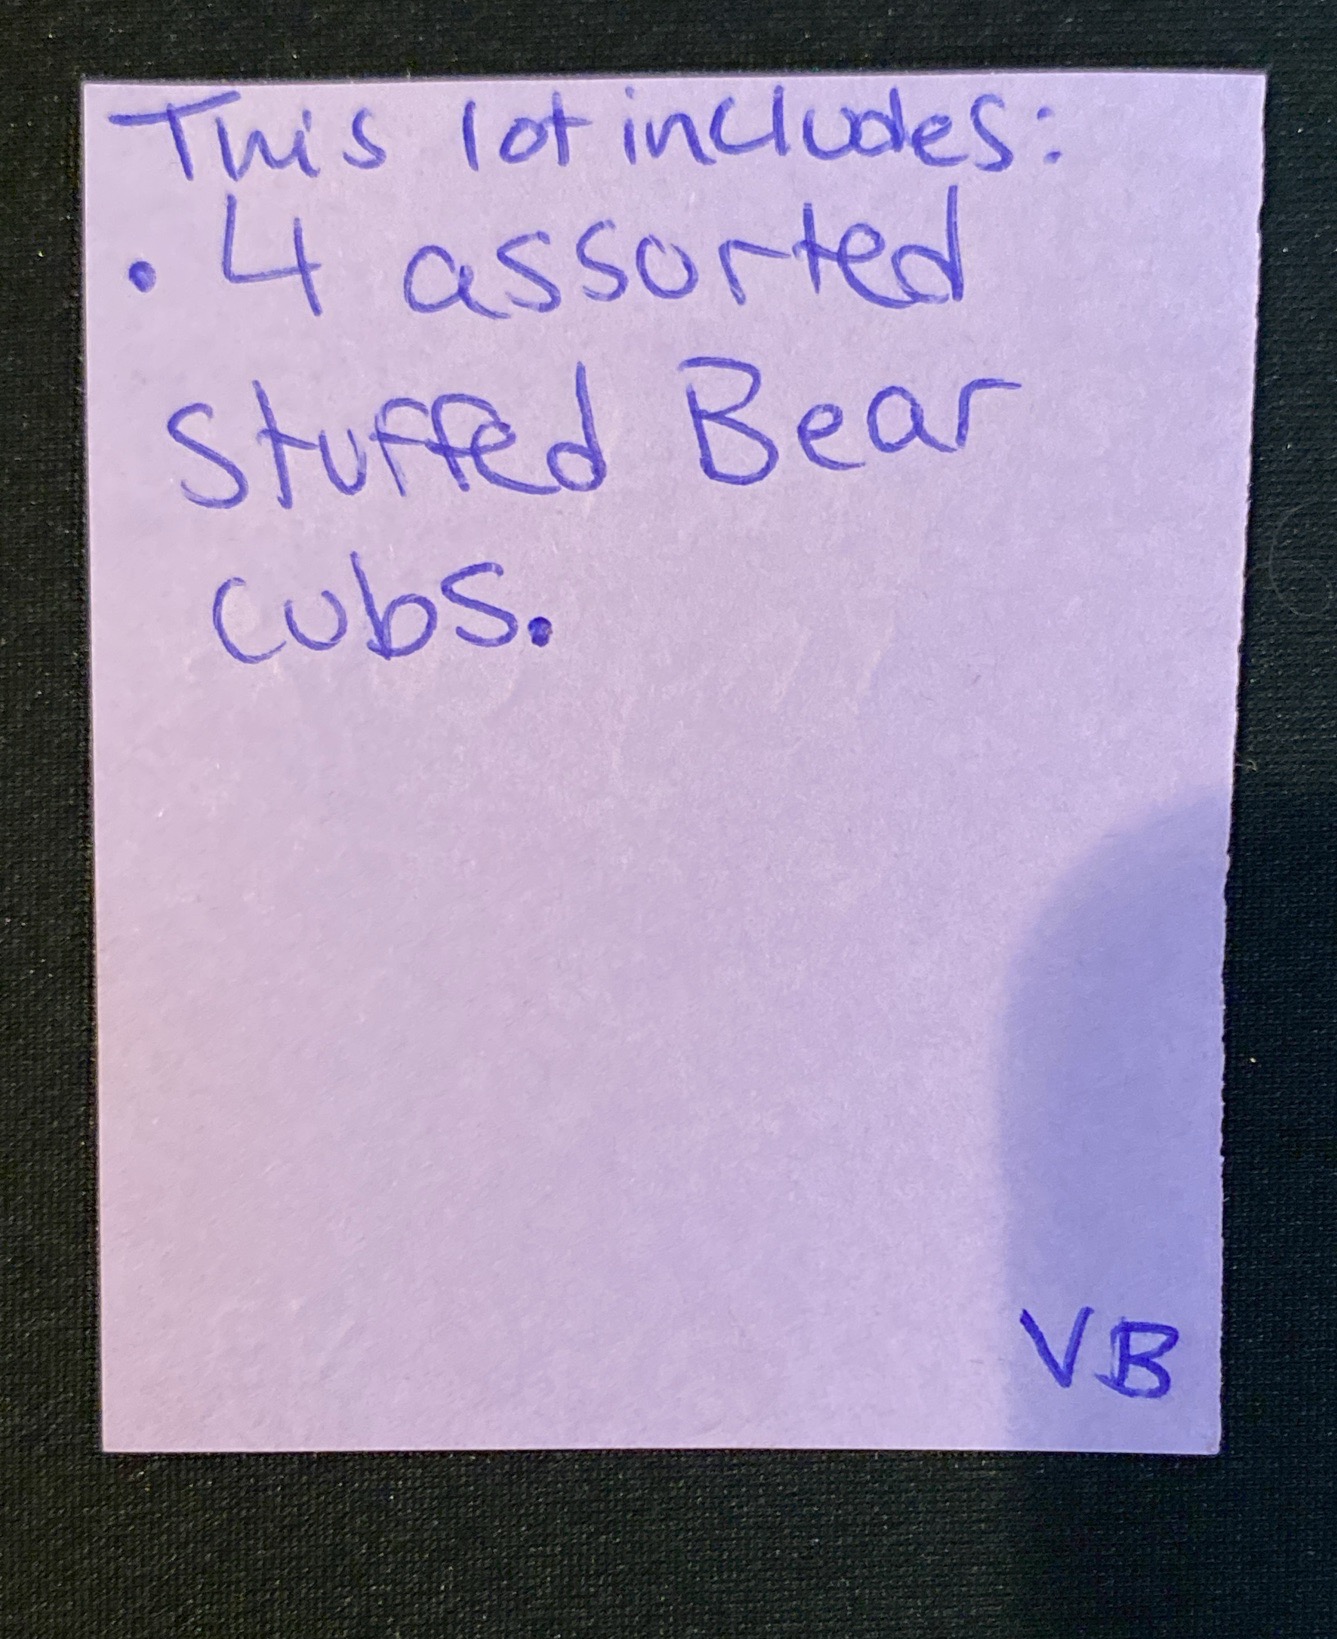 This lot includes:
• 4 assorted
Stuffed Bear
cubs.
VB